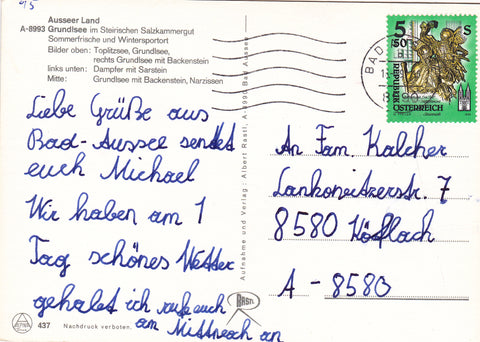 95
Ausseer Land
A-8993 Grundlsee im Steirischen Salzkammergut
Sommerfrische und Wintersportort
Bilder oben: Toplitzsee, Grundlsee,
rechts Grundlsee mit Backenstein
links unten: Dampfer mit Sarstein
Mitte: Grundlsee mit Backenstein, Narzissen
Liebe Grüße aus
Bad-Aussee sendet
euch Michael
Wir haben am 1
Tag schönes Wetter
gehabt ich rufe euch
am Mittwoch an
437 Nachdruck verboten.
Aufnahme und Verlag: Albert Rastl, A-8990 Bad Aussee
RASTL
BAD
5
50
S
REPUBLIK
ÖSTERREICH
An Fam. Kalcher
Lankowitzerstr. 7
8580 Köflach
A - 8580